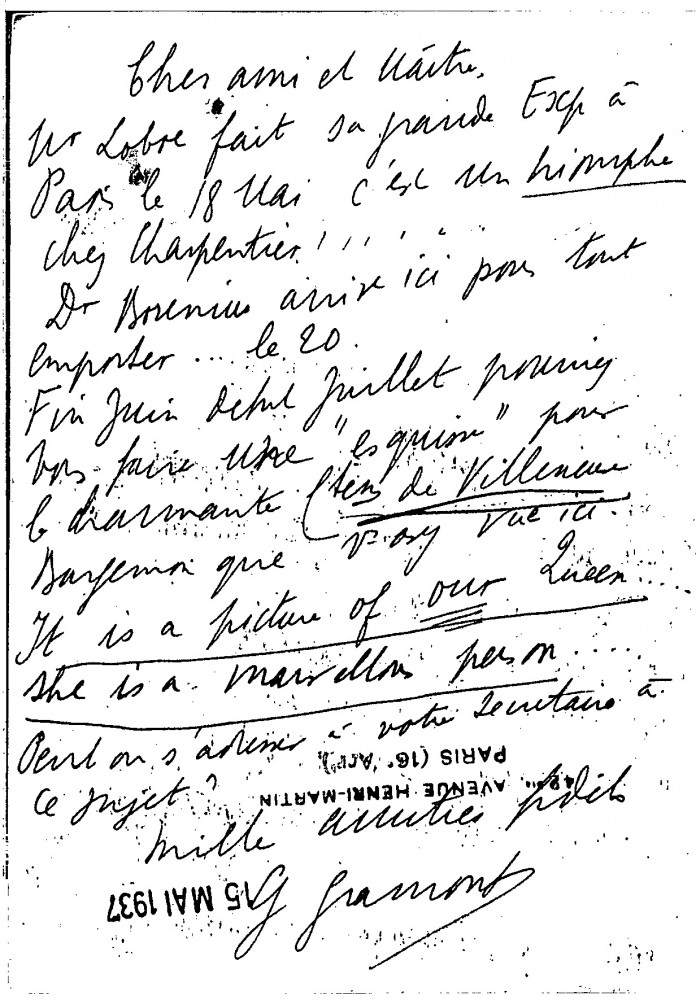 Cher ami et Maître,
Mr Lobre fait sa grande Exp à
Paris le 18 Mai c'est un triomphe
chez Charpentier ! , , , ,
Dr Borenius arrive ici pour tout
emporter ... le 20.
Fin Juin début Juillet pourriez
vous faire une "esquisse" pour
la charmante Ctess de Villeneuve
Bargemon que vs avez vue ici.
It is a picture of our Queen.....
she is a marvellous person.....
Peut on s'adresser à votre secrétaire à
ce sujet?
PARIS (16e Arrt)
AVENUE HENRI-MARTIN
mille amitiés fidèles
15 MAI 1937
G Gramont